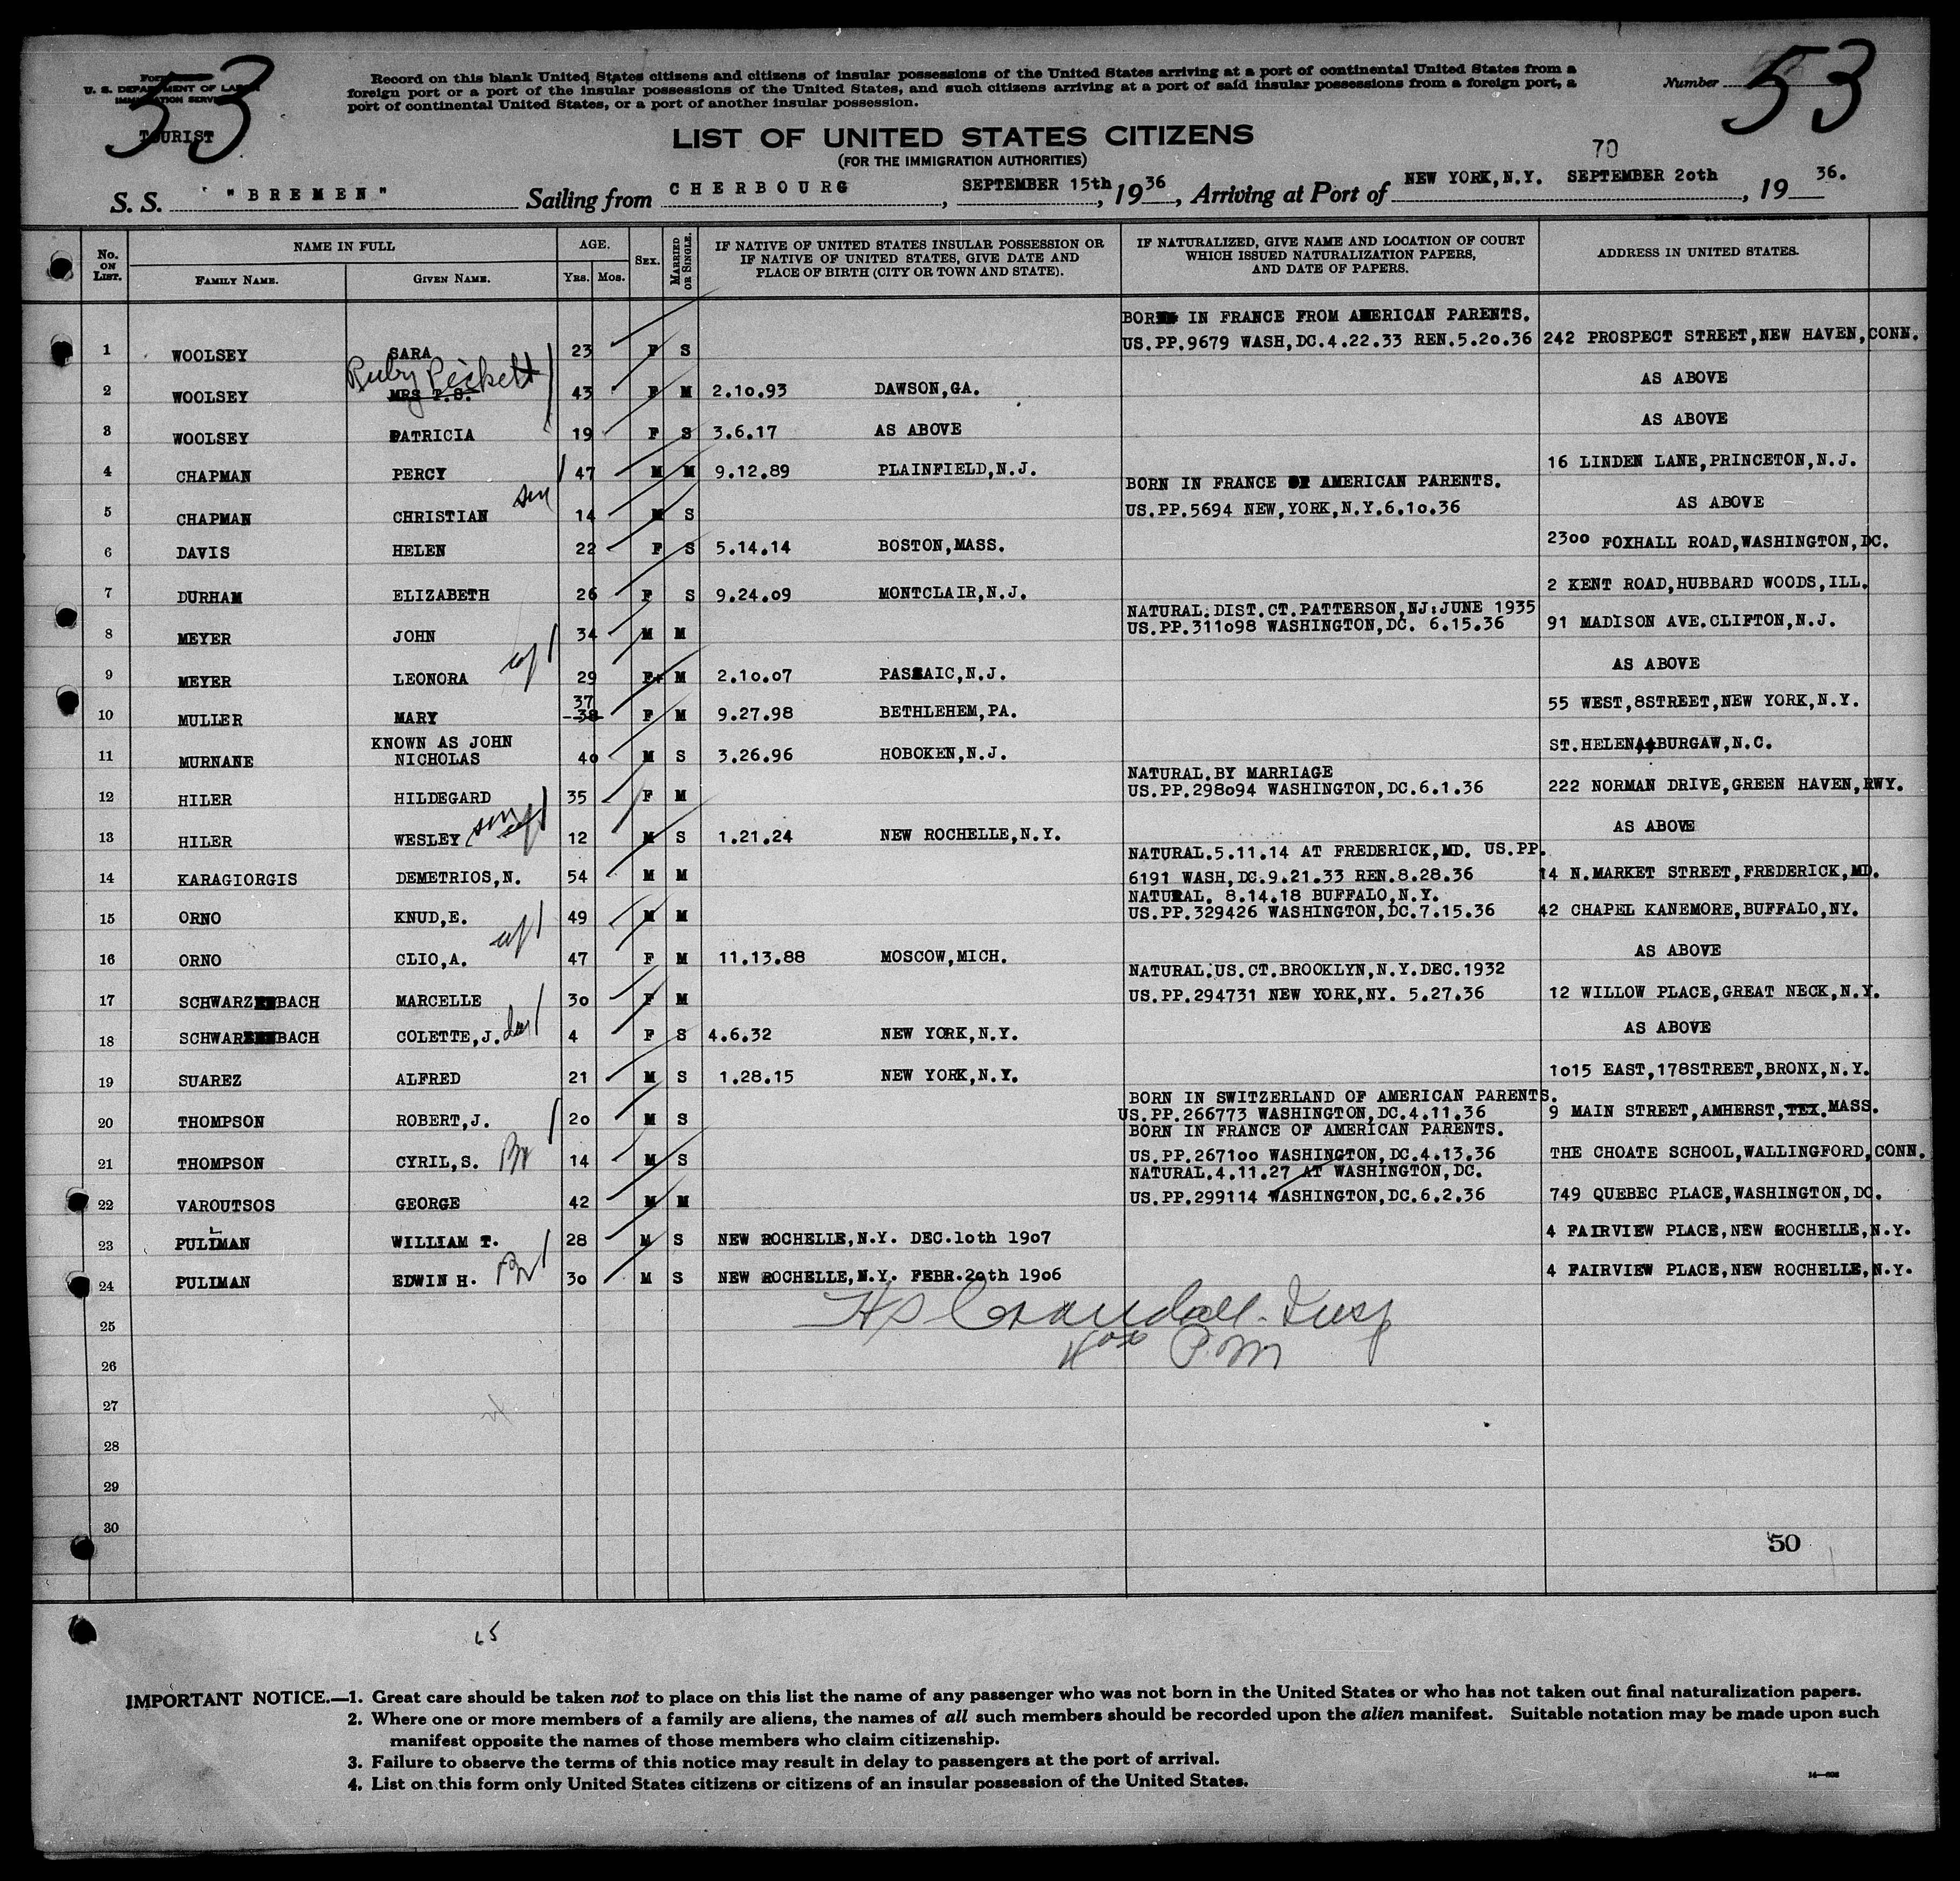 53
53
U. S. DEPARTMENT OF LABOR
IMMIGRATION SERVICE
TOURIST
Record on this blank United States citizens and citizens of insular possessions of the United States arriving at a port of continental United States from a
foreign port or a port of the insular possessions of the United States, and such citizens arriving at a port of said insular possessions from a foreign port, a
port of continental United States, or a port of another insular possession.
Number
LIST OF UNITED STATES CITIZENS
(FOR THE IMMIGRATION AUTHORITIES)
70
S. S. "BREMEN" Sailing from CHERBOURG, SEPTEMBER 15th, 1936, Arriving at Port of NEW YORK,N.Y. SEPTEMBER 20th, 19 36.
No. ON LIST. NAME IN FULL FAMILY NAME. GIVEN NAME. AGE. YRS. MOS. SEX. MARRIED OR SINGLE. IF NATIVE OF UNITED STATES INSULAR POSSESSION OR IF NATIVE OF UNITED STATES, GIVE DATE AND PLACE OF BIRTH (CITY OR TOWN AND STATE). IF NATURALIZED, GIVE NAME AND LOCATION OF COURT WHICH ISSUED NATURALIZATION PAPERS, AND DATE OF PAPERS. ADDRESS IN UNITED STATES.
BORN IN FRANCE FROM AMERICAN PARENTS.
1 WOOLSEY SARA 23 F S US.PP.9679 WASH,DC.4.22.33 REN.5.20.36 242 PROSPECT STREET,NEW HAVEN,CONN.
Ruby Pickett
2 WOOLSEY MRS T.S. 43 F M 2.10.93 DAWSON,GA. AS ABOVE
3 WOOLSEY PATRICIA 19 F S 3.6.17 AS ABOVE AS ABOVE
4 CHAPMAN PERCY 47 M M 9.12.89 PLAINFIELD,N.J. 16 LINDEN LANE,PRINCETON,N.J.
BORN IN FRANCE OF AMERICAN PARENTS.
5 CHAPMAN CHRISTIAN son 14 M S US.PP.5694 NEW,YORK,N.Y.6.10.36 AS ABOVE
6 DAVIS HELEN 22 F S 5.14.14 BOSTON,MASS. 2300 FOXHALL ROAD,WASHINGTON,DC.
7 DURHAM ELIZABETH 26 F S 9.24.09 MONTCLAIR,N.J. 2 KENT ROAD,HUBBARD WOODS,ILL.
NATURAL.DIST.CT.PATTERSON,NJ:JUNE 1935
8 MEYER JOHN 34 M M US.PP.311098 WASHINGTON,DC. 6.15.36 91 MADISON AVE.CLIFTON,N.J.
9 MEYER LEONORA wf 29 F M 2.10.07 PASSAIC,N.J. AS ABOVE
37
10 MULLER MARY 38 F M 9.27.98 BETHLEHEM,PA. 55 WEST,8STREET,NEW YORK,N.Y.
KNOWN AS JOHN
11 MURNANE NICHOLAS 40 M S 3.26.96 HOBOKEN,N.J. ST.HELENA,BURGAW,N.C.
NATURAL.BY MARRIAGE
12 HILER HILDEGARD 35 F M US.PP.298094 WASHINGTON,DC.6.1.36 222 NORMAN DRIVE,GREEN HAVEN,RWY.
13 HILER WESLEY son 12 M S 1.21.24 NEW ROCHELLE,N.Y. AS ABOVE
NATURAL.5.11.14 AT FREDERICK,MD. US.PP.
14 KARAGIORGIS DEMETRIOS,N. 54 M M 6191 WASH,DC.9.21.33 REN.8.28.36 14 N.MARKET STREET,FREDERICK,MD.
NATURAL. 8.14.18 BUFFALO,N.Y.
15 ORNO KNUD,E. 49 M M US.PP.329426 WASHINGTON,DC.7.15.36 42 CHAPEL KANEMORE,BUFFALO,NY.
16 ORNO CLIO,A. wf 47 F M 11.13.88 MOSCOW,MICH. AS ABOVE
NATURAL.US.CT.BROOKLYN,N.Y.DEC.1932
17 SCHWARZENBACH MARCELLE 30 F M US.PP.294731 NEW YORK,NY. 5.27.36 12 WILLOW PLACE,GREAT NECK,N.Y.
18 SCHWARZENBACH COLETTE,J. dau 4 F S 4.6.32 NEW YORK,N.Y. AS ABOVE
19 SUAREZ ALFRED 21 M S 1.28.15 NEW YORK,N.Y. 1015 EAST,178STREET,BRONX,N.Y.
BORN IN SWITZERLAND OF AMERICAN PARENTS.
20 THOMPSON ROBERT,J. 20 M S US.PP.266773 WASHINGTON,DC.4.11.36 9 MAIN STREET,AMHERST,TEX.MASS.
BORN IN FRANCE OF AMERICAN PARENTS.
21 THOMPSON CYRIL,S. Br 14 M S US.PP.267100 WASHINGTON,DC.4.13.36 THE CHOATE SCHOOL,WALLINGFORD,CONN.
NATURAL.4.11.27 AT WASHINGTON,DC.
22 VAROUTSOS GEORGE 42 M M US.PP.299114 WASHINGTON,DC.6.2.36 749 QUEBEC PLACE,WASHINGTON,DC.
23 PULLMAN WILLIAM T. 28 M S NEW ROCHELLE,N.Y. DEC.10th 1907 4 FAIRVIEW PLACE,NEW ROCHELLE,N.Y.
24 PULLMAN EDWIN H. Br 30 M S NEW ROCHELLE,N.Y. FEBR.20th 1906 4 FAIRVIEW PLACE,NEW ROCHELLE,N.Y.
25 HS Crandall. Insp
26 P.M
27
28
29
30
50
65
IMPORTANT NOTICE.—1. Great care should be taken not to place on this list the name of any passenger who was not born in the United States or who has not taken out final naturalization papers.
2. Where one or more members of a family are aliens, the names of all such members should be recorded upon the alien manifest. Suitable notation may be made upon such
manifest opposite the names of those members who claim citizenship.
3. Failure to observe the terms of this notice may result in delay to passengers at the port of arrival.
4. List on this form only United States citizens or citizens of an insular possession of the United States.